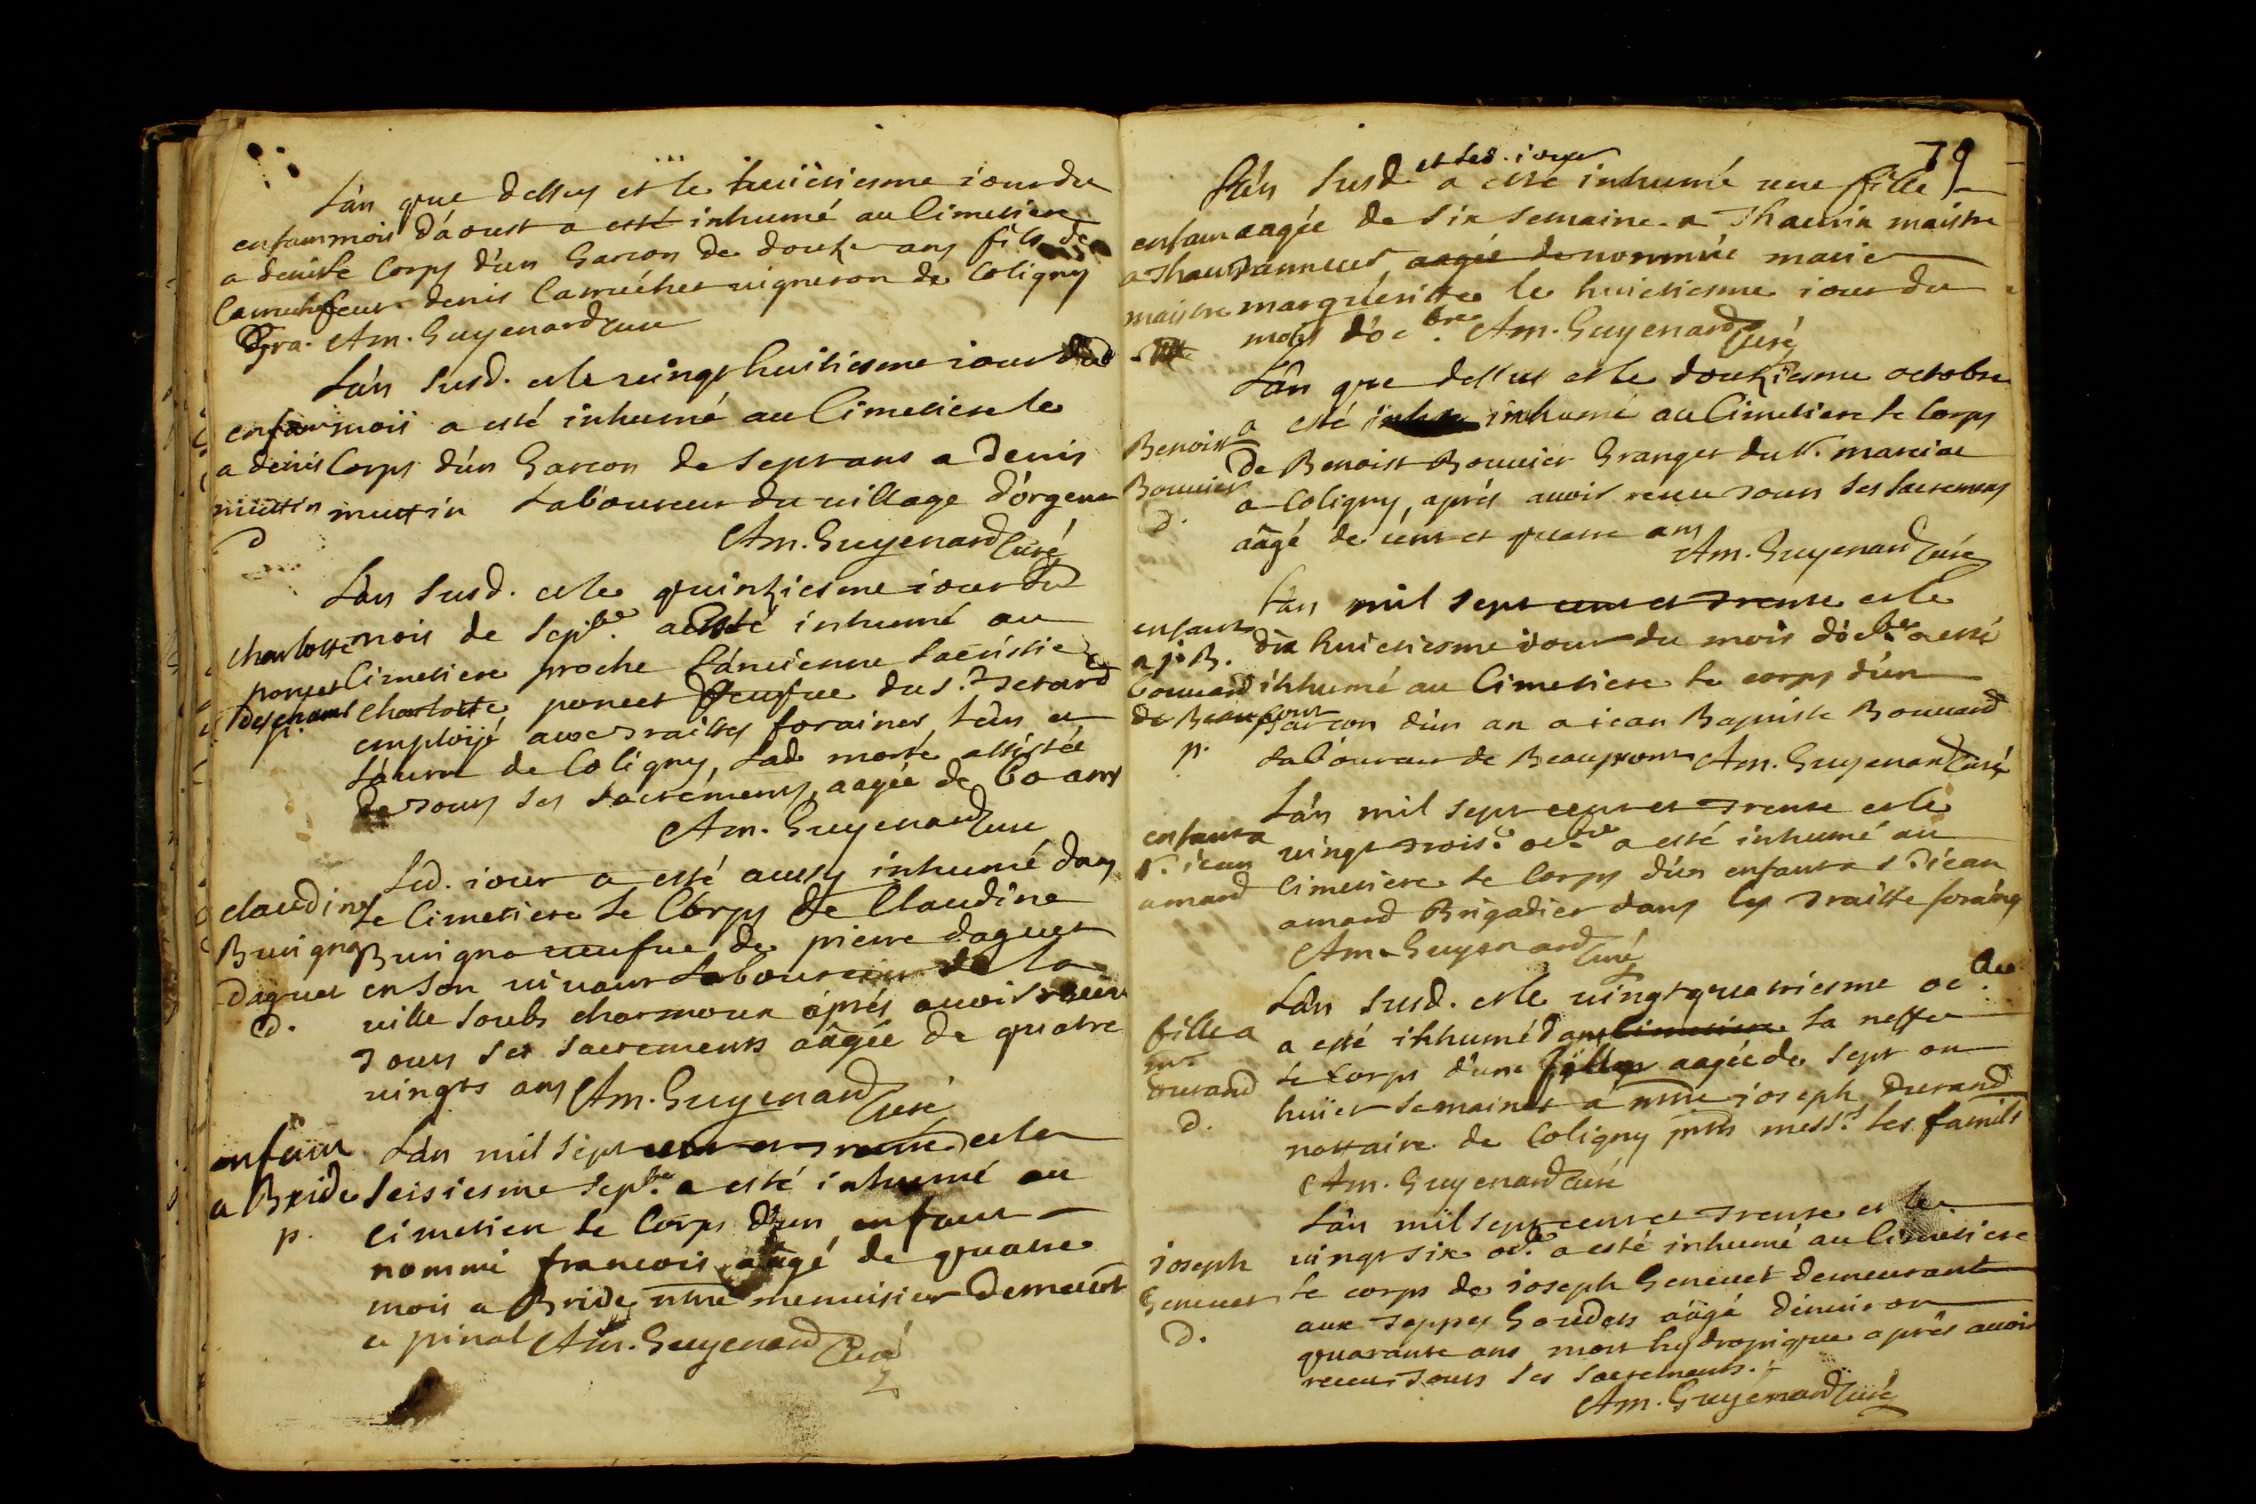 L'an que dessus et le huictiesme iour du
enfant mois d'aoust a esté inhumé au Cimetiere
a denis le Corps d'un Garcon de douze ans fils de
feur denis Camuchet vigneron de Coligny
Gra. Am. Guyenard Curé
L'an susd. et le vingt huitiesme iour dud
enfant mois a esté inhumé au Cimetiere le
a denis Corps d'un Garcon de sept ans a Denis
muttin muttin Laboureur du village d'orgena
D
Am. Guyenard Curé
L'an susd. et le quinziesme iour du
charlotte mois de sepbre. a esté inhumé au
poncet Cimetiere proche l'ancienne sacristie
deschams charlotte poncet veufue du s.
p. employé aux traittes foraines l'an et
de Coligny, lad morte assistée
de tous les sacrements, aagée de 60 ans
Am. Guyenard Cure
Led. iour a esté aussy inhumé dans
claudine le Cimetiere le Corps de Claudine
Buigna Buigna veufue de pierre daguet
Daguet en son vivant Laboureur de la
D. ville soubs charmoux aprés avoir receu
tous les sacrements aâgée de quatre
vingts ans Am. Guyenard Curé
enfant L'an mil sept cent et trente et le
a Bride seisiesme sepbre. a esté inhumé au
p. cimetiere le Corps d'un enfant
nommé francois aâgé de quatre
mois a Bride mtre menuisier demeurt
a pinal Am. Guyenard Curé
79
L'an susd. et led. iour a esté inhumé une fille
enfant aagée de six semaine a Thauvin maistre
a Thau tanneur, aagée de nommée marie
maistre marguéritte le huictiesme iour du
mois d'ocbre. Am. Guyenard Curé
L'an que dessus et le douziesme octobre
a esté inhumé au Cimetiere le Corps
Benoist de Benoist Bouuier Granger du s. marciat
Bouuier a Coligny, aprés auoir receu tous les sacremens
D. aâgé de cent et quatre ans
Am. Guyenard Cure
L'an mil sept cent et trente et le
enfant dix huictiesme iour du mois d'ocbre a esté
a j. B. inhumé au Cimetiere le corps d'un
Bouuard
de Beaupont garcon d'un an a iean Baptiste Bouuard
p. Laboureur de Beaupont Am. Guyenard Curé
L'an mil sept cent et trente et le
enfant a vingt trois.e ocbre a esté inhumé au
s. iean Cimetiere le Corps d'un enfant a s. iean
amard amard Brigadier dans les traitte foraines
Am. Guyenard Curé
L'an susd. et le vingt quatriesme ocbre.
fille a a esté inhumé dans Cimetiere la neffe
mre le Corps d'une fille aagée de sept ou
durand huict semaines a mtre ioseph durand
D. nottaire de Coligny pnts messrs. Les famils
Am. Guyenard Curé
L'an mil sept cent et trente et le
ioseph vingt six ocbre. a esté inhumé au Cimetiere
Geneuet le corps de ioseph Geneuet demeurant
D. aux teppes aâgé d'enuiron
quarante ans mort hydropique aprés auoir
receu tous les sacrements.
Am. Guyenard Curé